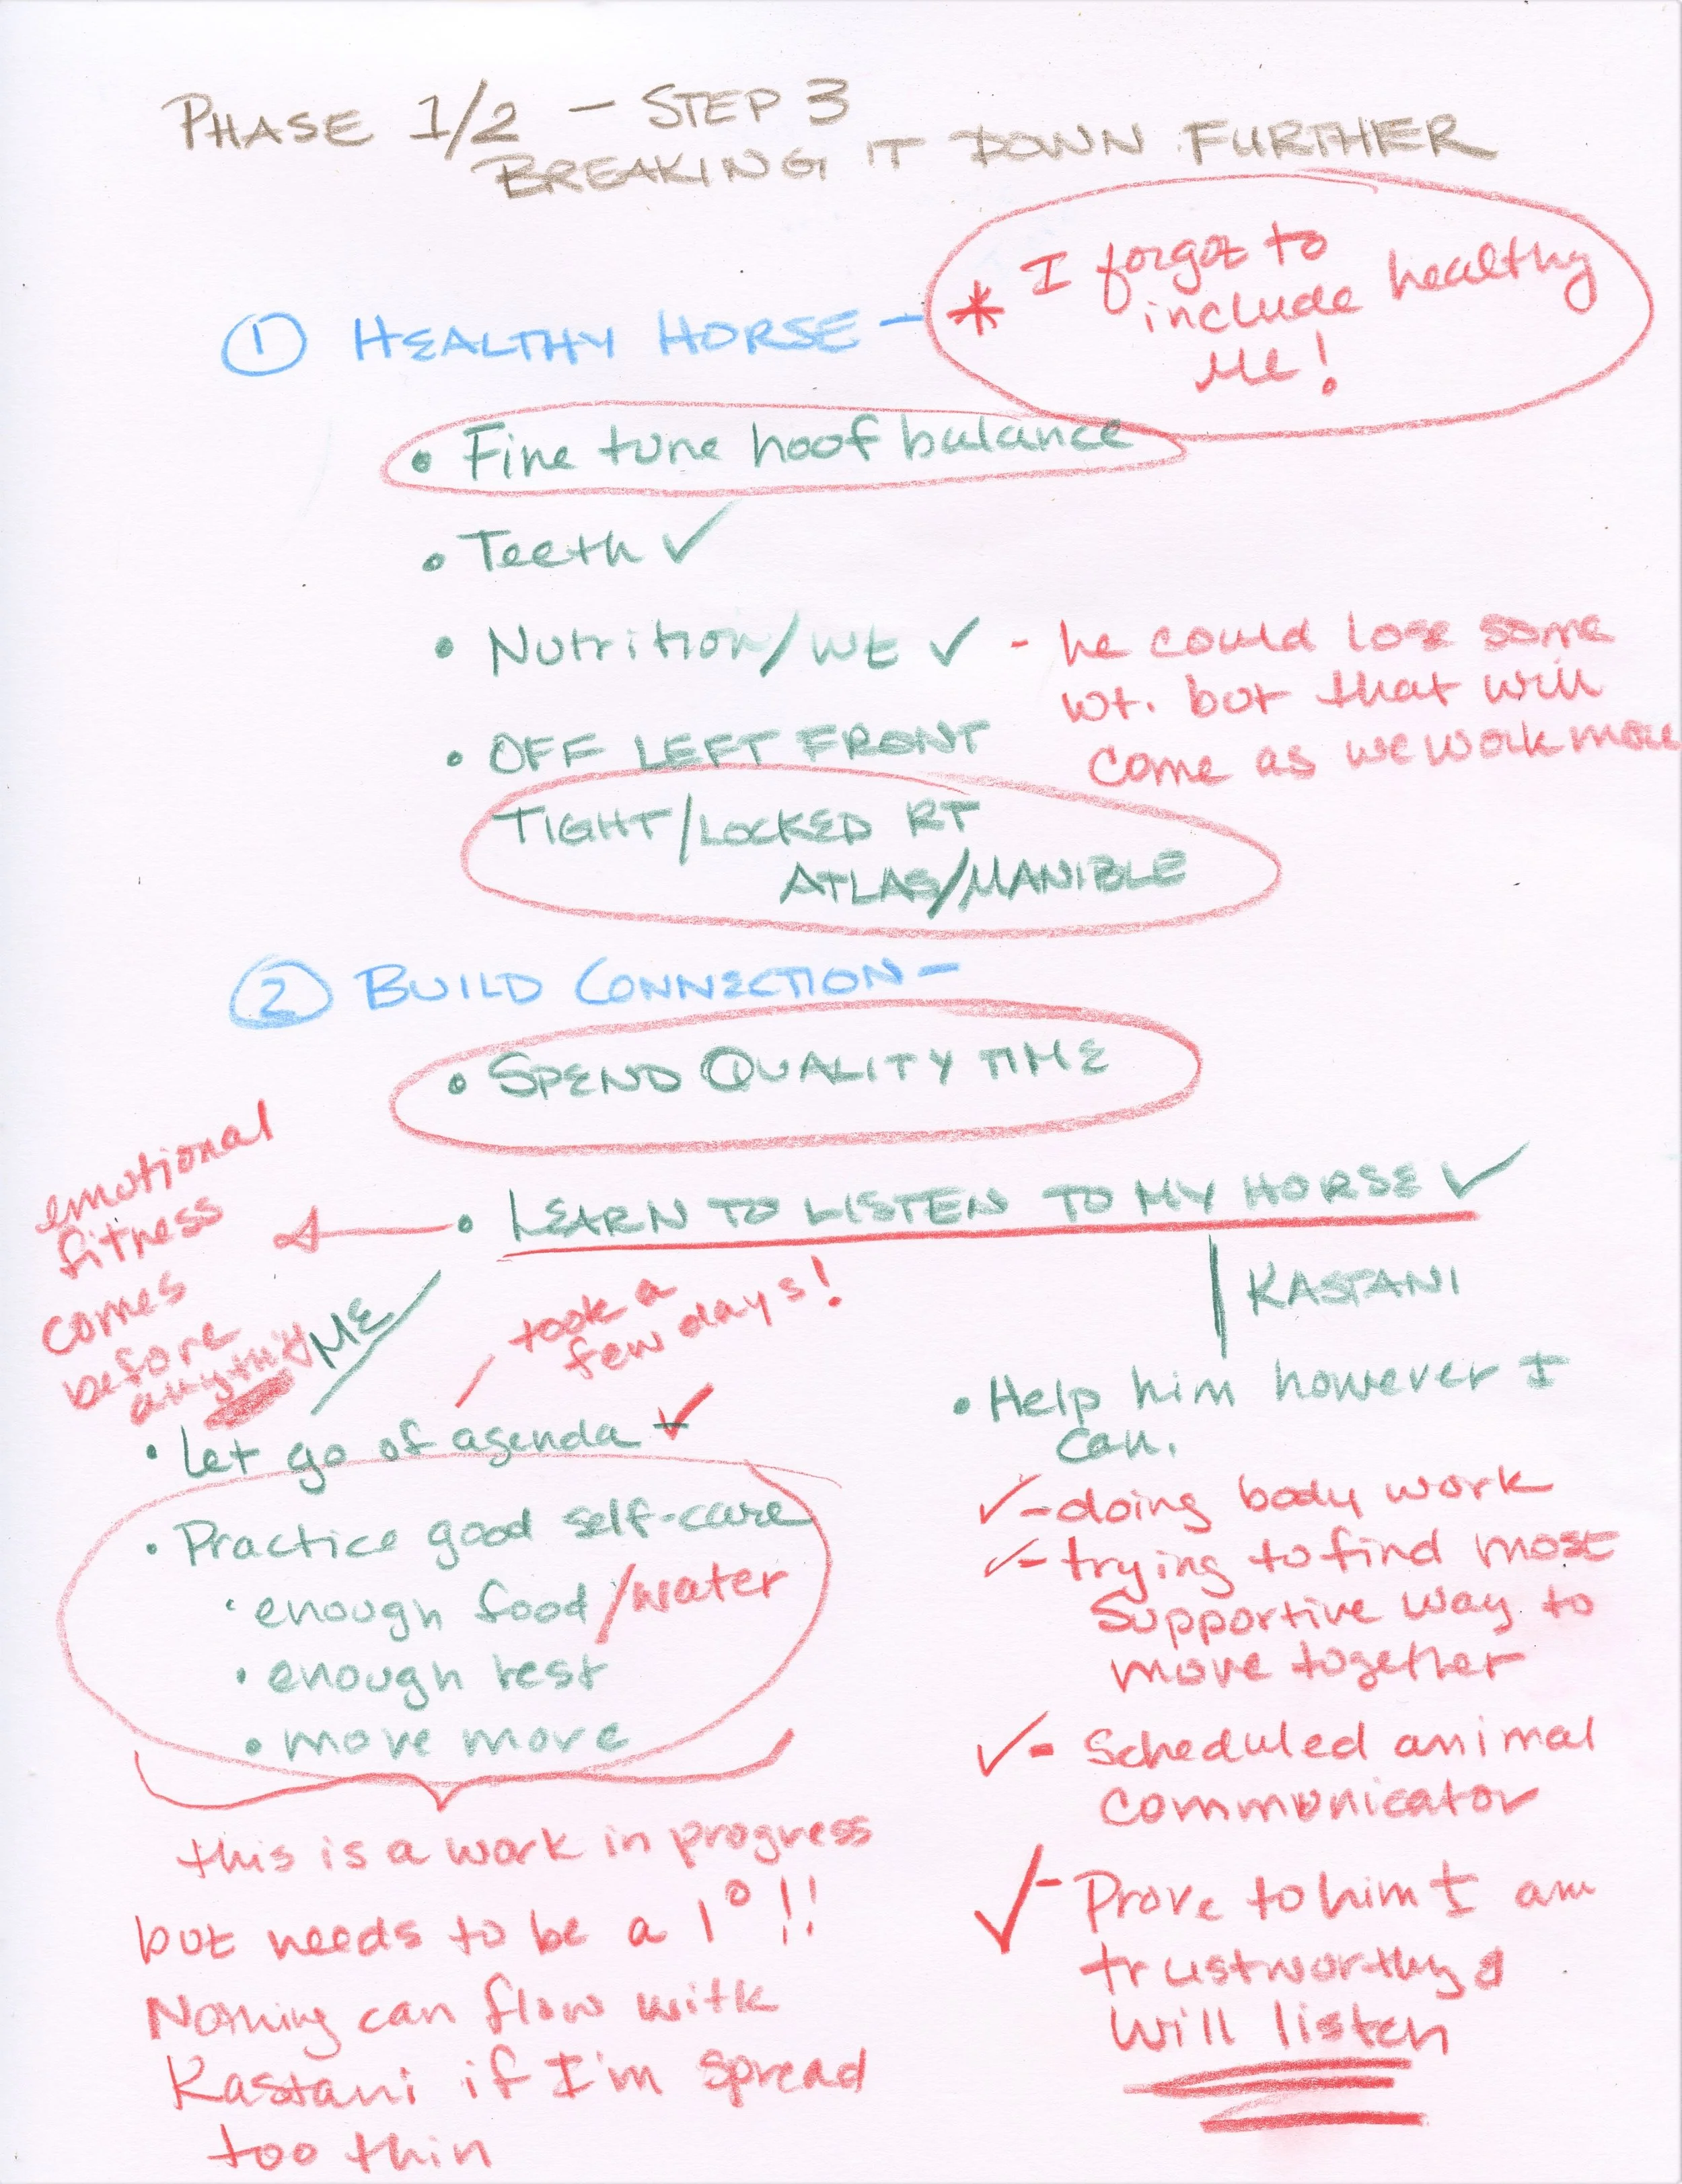 PHASE 1/2 - STEP 3
BREAKING IT DOWN FURTHER
① HEALTHY HORSE -
* I forgot to
include healthy
Me!
• Fine tune hoof balance
• Teeth ✓
• Nutrition/wt ✓ - he could lose some
wt. but that will
come as we work more
• OFF LEFT FRONT
TIGHT/LOCKED RT
ATLAS/MANIBLE
② BUILD CONNECTION -
• SPEND QUALITY TIME
• LEARN TO LISTEN TO MY HORSE ✓
emotional
fitness
comes
before
anything
ME
took a
few days!
• Let go of agenda ✓
• Practice good self-care
• enough food/water
• enough rest
• move more
this is a work in progress
but needs to be a 1° !!
Nothing can flow with
Kastani if I'm spread
too thin
KASTANI
• Help him however I
can.
✓ - doing body work
✓ - trying to find most
supportive way to
move together
✓ - Scheduled animal
communicator
✓ - Prove to him I am
trustworthy &
will listen